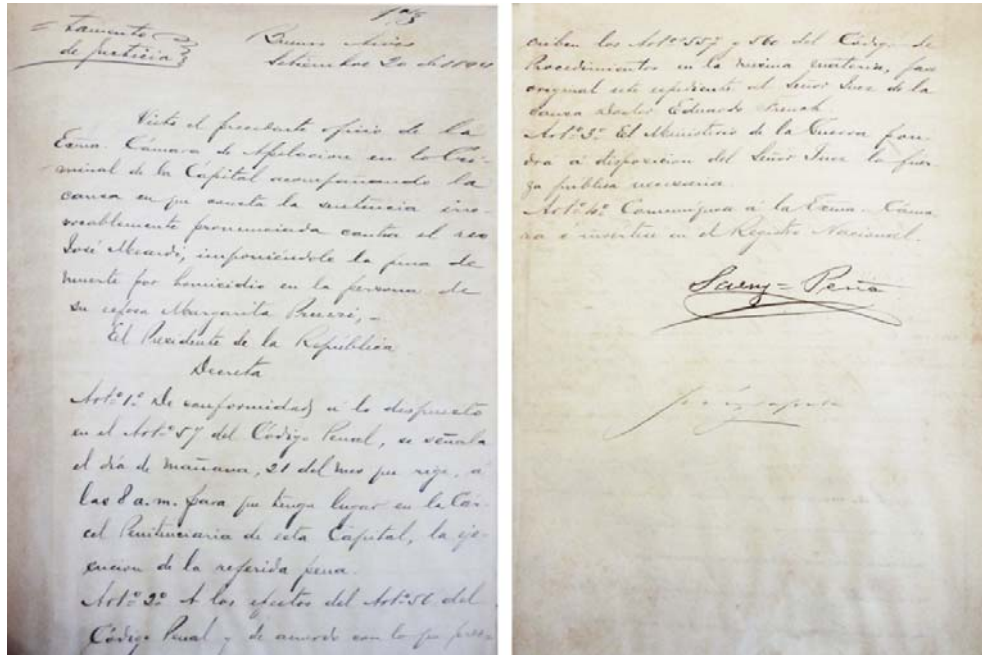 = tamento
de Justicia
Buenos Aires
Setiembre 20 de 1894
Visto el precedente oficio de la
Exma. Cámara de Apelacion en lo Cri-
minal de la Cápital acompañando la
causa en que consta la sentencia irre-
vocablemente pronunciada contra el reo
José Meardi, imponiéndole la pena de
muerte por homicidio en la persona de
su esposa Margarita
El Presidente de la República
Decreta
Art.º 1.º De conformidad á lo dispuesto
en el Art.º 57 del Código Penal, se señala
el día de mañana, 21 del mes que rige, á
las 8 a.m. para que tenga lugar en la Cár-
cel Penitenciaria de esta Capital, la eje-
cucion de la referida pena.
Art.º 2.º A los efectos del Art.º 56 del
Código Penal y de acuerdo con lo que pres-
criben los Art.ºs 557 y 560 del Código de
Procedimientos en la misma materia, pase
original este espediente al Señor Juez de la
causa Doctor Eduardo French.
Art.º 3.º El Ministerio de la Guerra pon-
dra á disposicion del Señor Juez la fuer-
za pública necesaria.
Art.º 4.º Comuníquese á la Exma. Cáma-
ra é insertese en el Registro Nacional.
Saenz = Peña